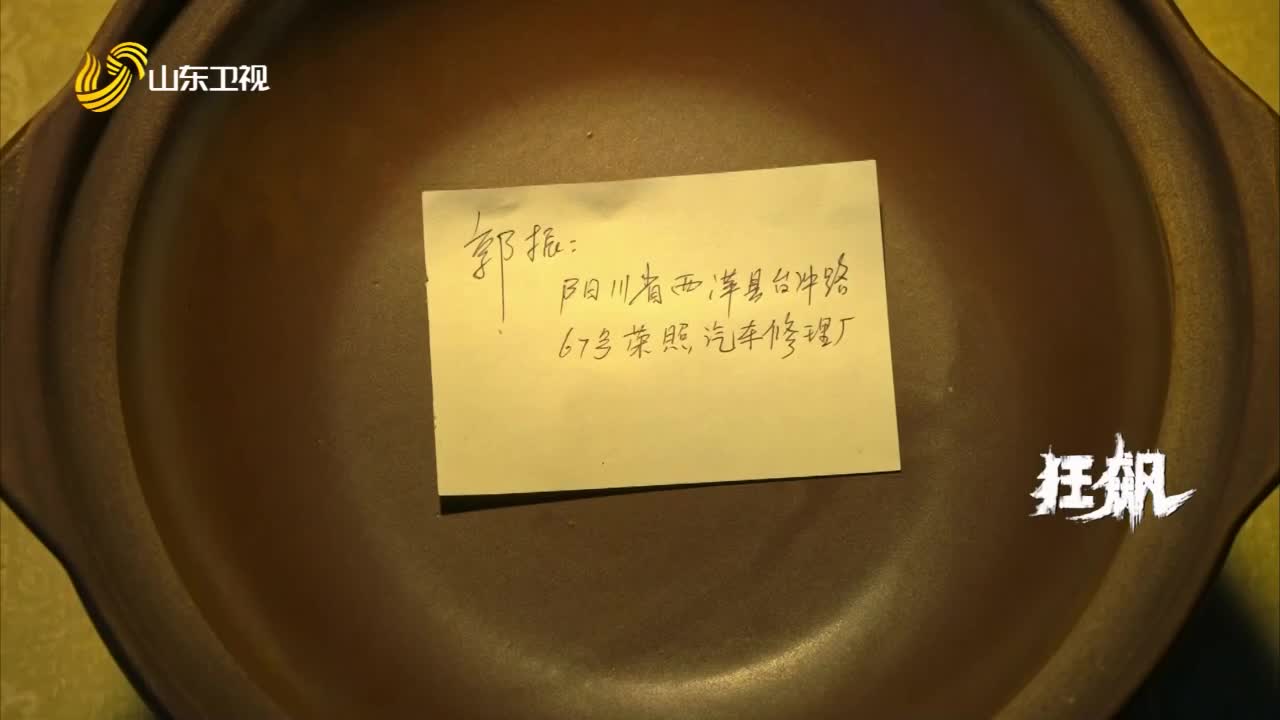 山东卫视
郭振:
阳川省西泽县台冲路
67号荣照汽车修理厂
狂飙